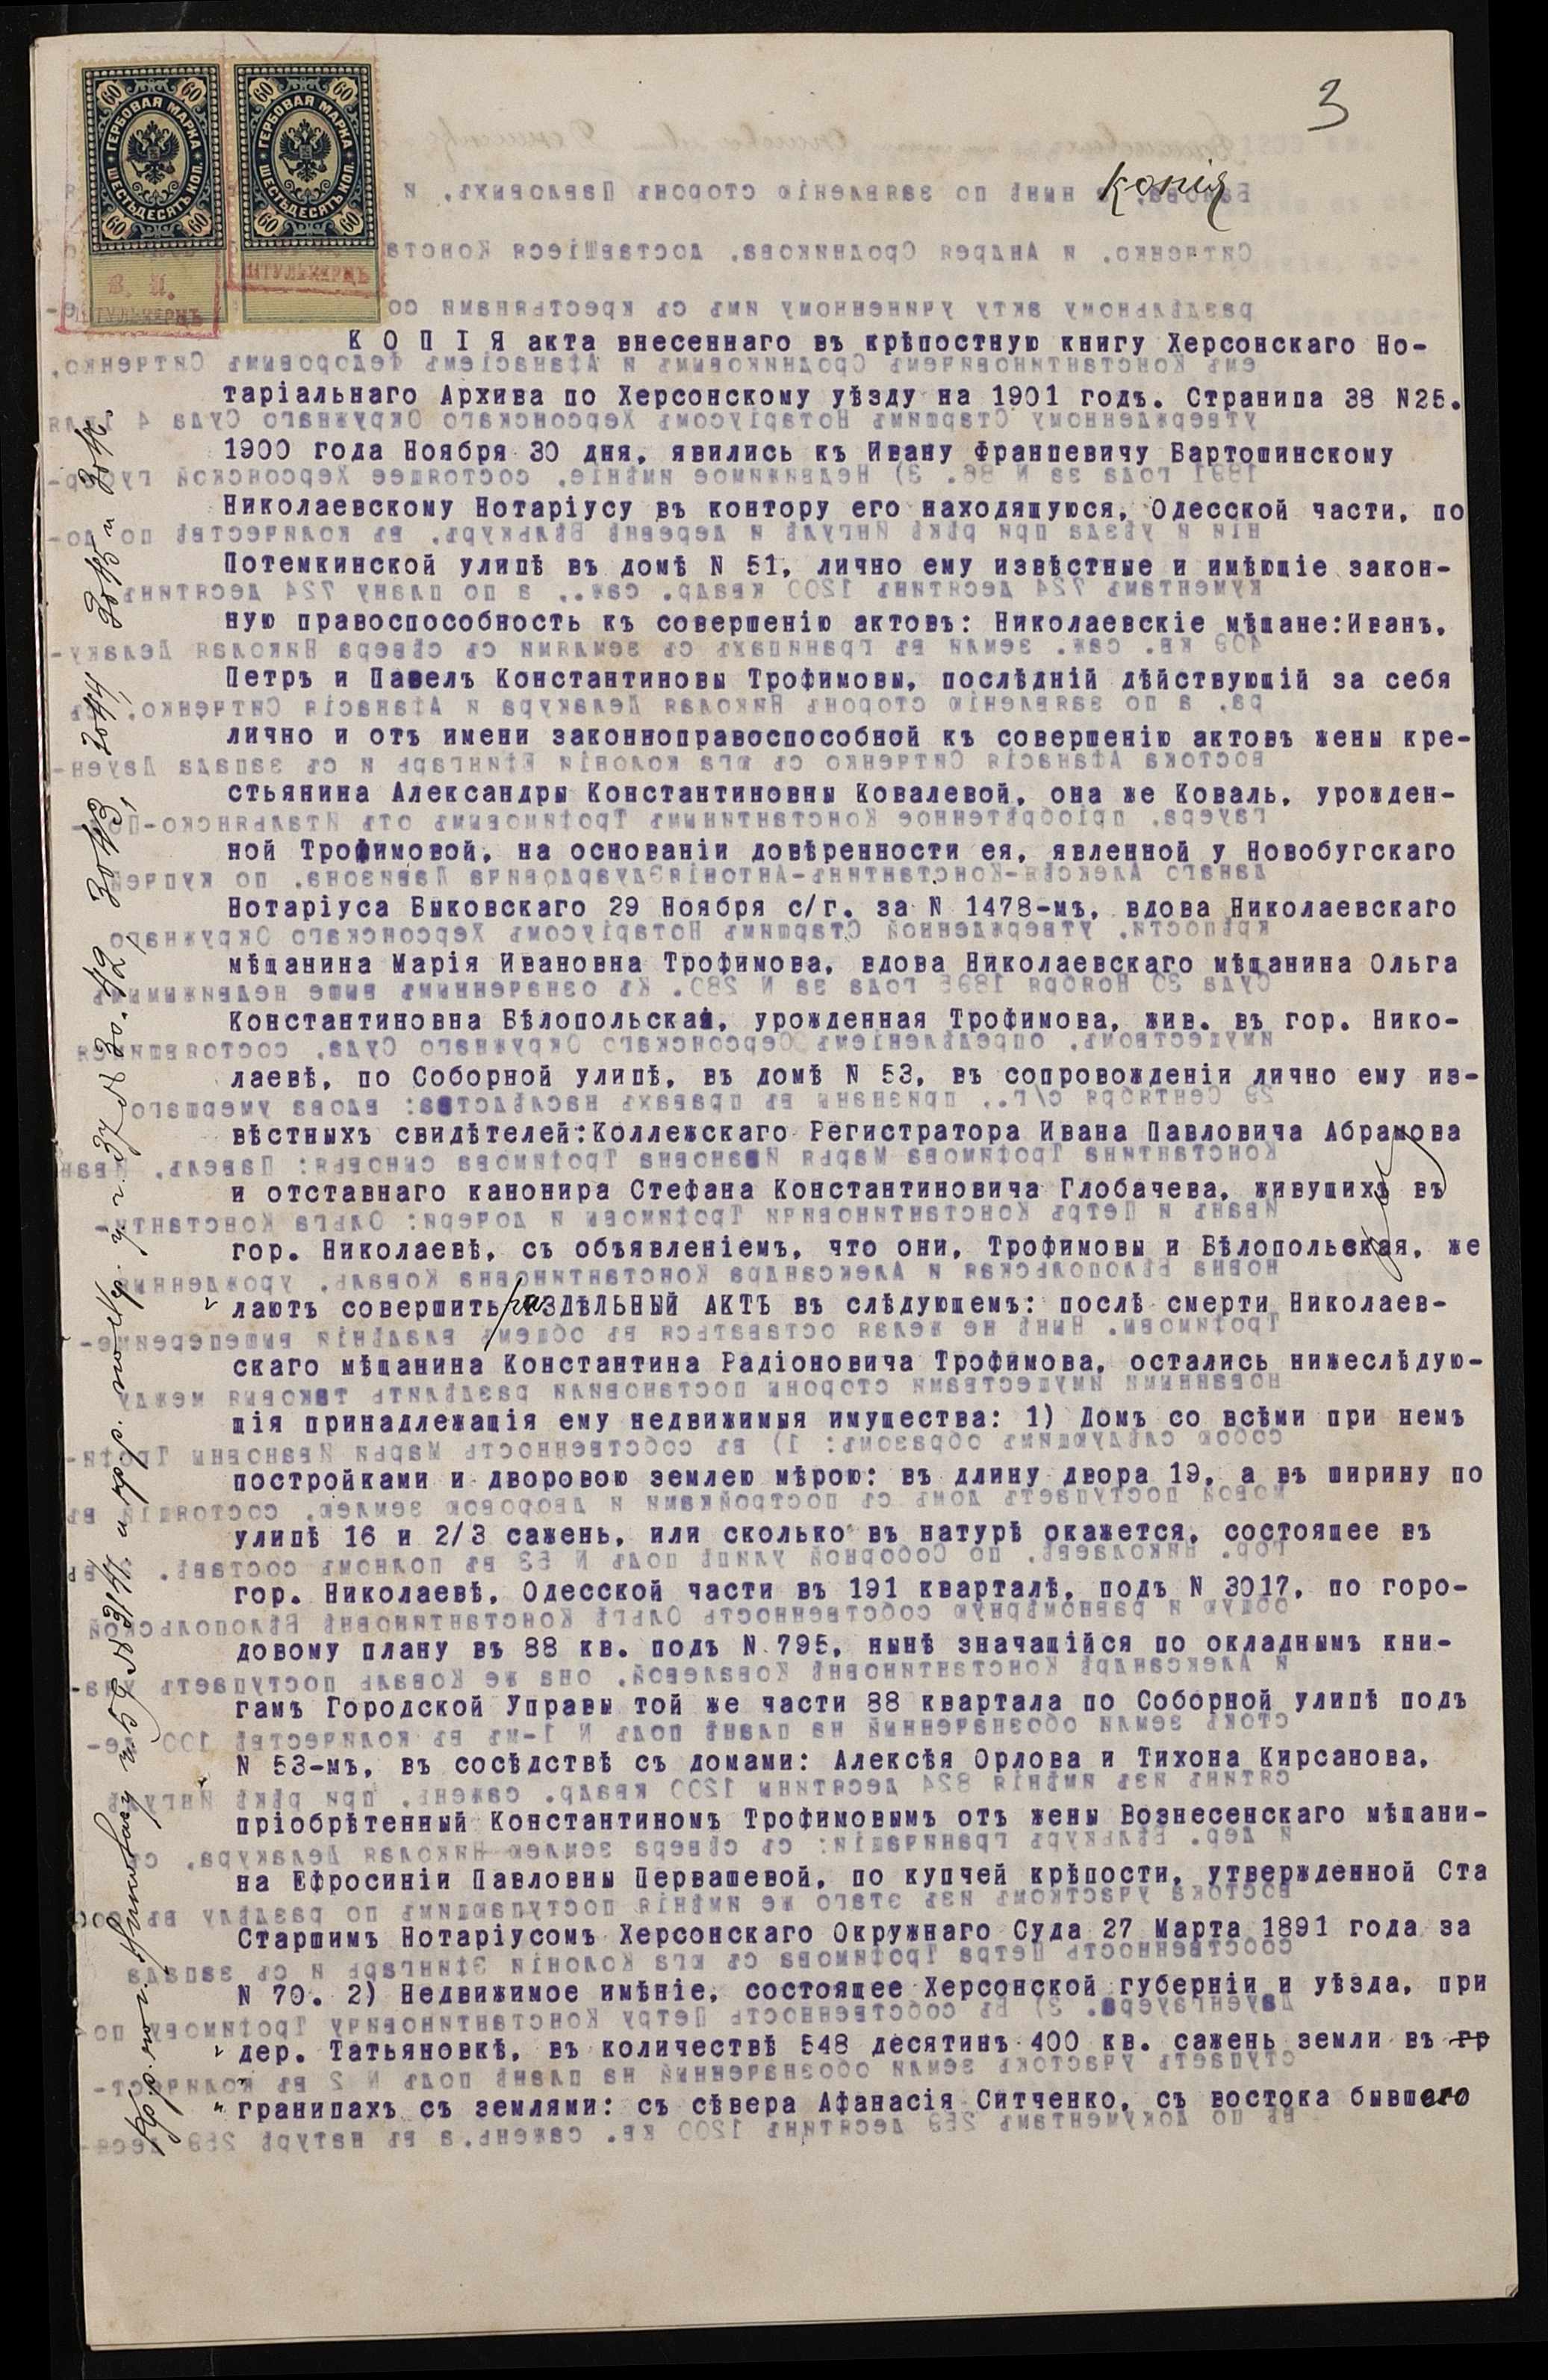 3
Копія
60 60
ГЕРБОВАЯ МАРКА
ШЕСТЬДЕСЯТЪ КОП.
60 60
60 60
ГЕРБОВАЯ МАРКА
ШЕСТЬДЕСЯТЪ КОП.
60 60
К О П І Я акта внесеннаго въ крѣпостную книгу Херсонскаго Но-
таріальнаго Архива по Херсонскому уѣзду на 1901 годъ. Страница 38 N25.
1900 года Ноября 30 дня, явились къ Ивану Францевичу Бартошинскому
Николаевскому Нотаріусу въ контору его находящуюся, Одесской части, по
Потемкинской улицѣ въ домѣ N 51, лично ему извѣстные и имѣющіе закон-
ную правоспособность къ совершенію актовъ: Николаевскіе мѣщане:Иванъ,
Петръ и Павелъ Константиновы Трофимовы, послѣдній дѣйствующій за себя
лично и отъ имени законноправоспособной къ совершенію актовъ жены кре-
стьянина Александры Константиновны Ковалевой, она же Коваль, урожден-
ной Трофимовой, на основаніи довѣренности ея, явленной у Новобугскаго
Нотаріуса Быковскаго 29 Ноября с/г. за N 1478-мъ, вдова Николаевскаго
мѣщанина Марія Ивановна Трофимова, вдова Николаевскаго мѣщанина Ольга
Константиновна Бѣлопольская, урожденная Трофимова, жив. въ гор. Нико-
лаевѣ, по Соборной улицѣ, въ домѣ N 53, въ сопровожденіи лично ему из-
вѣстныхъ свидѣтелей:Коллежскаго Регистратора Ивана Павловича Абрамова
и отставнаго канонира Стефана Константиновича Глобачева, живущихъ въ
гор. Николаевѣ, съ объявленіемъ, что они, Трофимовы и Бѣлопольская, же
лаютъ совершить раЗДѢЛЬНЫЙ АКТЪ въ слѣдующемъ: послѣ смерти Николаев-
скаго мѣщанина Константина Радіоновича Трофимова, остались нижеслѣдую-
щія принадлежащія ему недвижимыя имущества: 1) Домъ со всѣми при немъ
постройками и дворовою землею мѣрою: въ длину двора 19, а въ ширину по
улицѣ 16 и 2/3 сажень, или сколько въ натурѣ окажется, состоящее въ
гор. Николаевѣ, Одесской части въ 191 кварталѣ, подъ N 3017, по горо-
довому плану въ 88 кв. подъ N 795, нынѣ значащійся по окладнымъ кни-
гамъ Городской Управы той же части 88 квартала по Соборной улицѣ подъ
N 53-мъ, въ сосѣдствѣ съ домами: Алексѣя Орлова и Тихона Кирсанова,
пріобрѣтенный Константиномъ Трофимовымъ отъ жены Вознесенскаго мѣщани-
на Ефросиніи Павловны Первашевой, по купчей крѣпости, утвержденной Ста
Старшимъ Нотаріусомъ Херсонскаго Окружнаго Суда 27 Марта 1891 года за
N 70. 2) Недвижимое имѣніе, состоящее Херсонской губерніи и уѣзда, при
дер. Татьяновкѣ, въ количествѣ 548 десятинъ 400 кв. сажень земли въ гр
границахъ съ землями: съ сѣвера Афанасія Ситченко, съ востока бывшаго